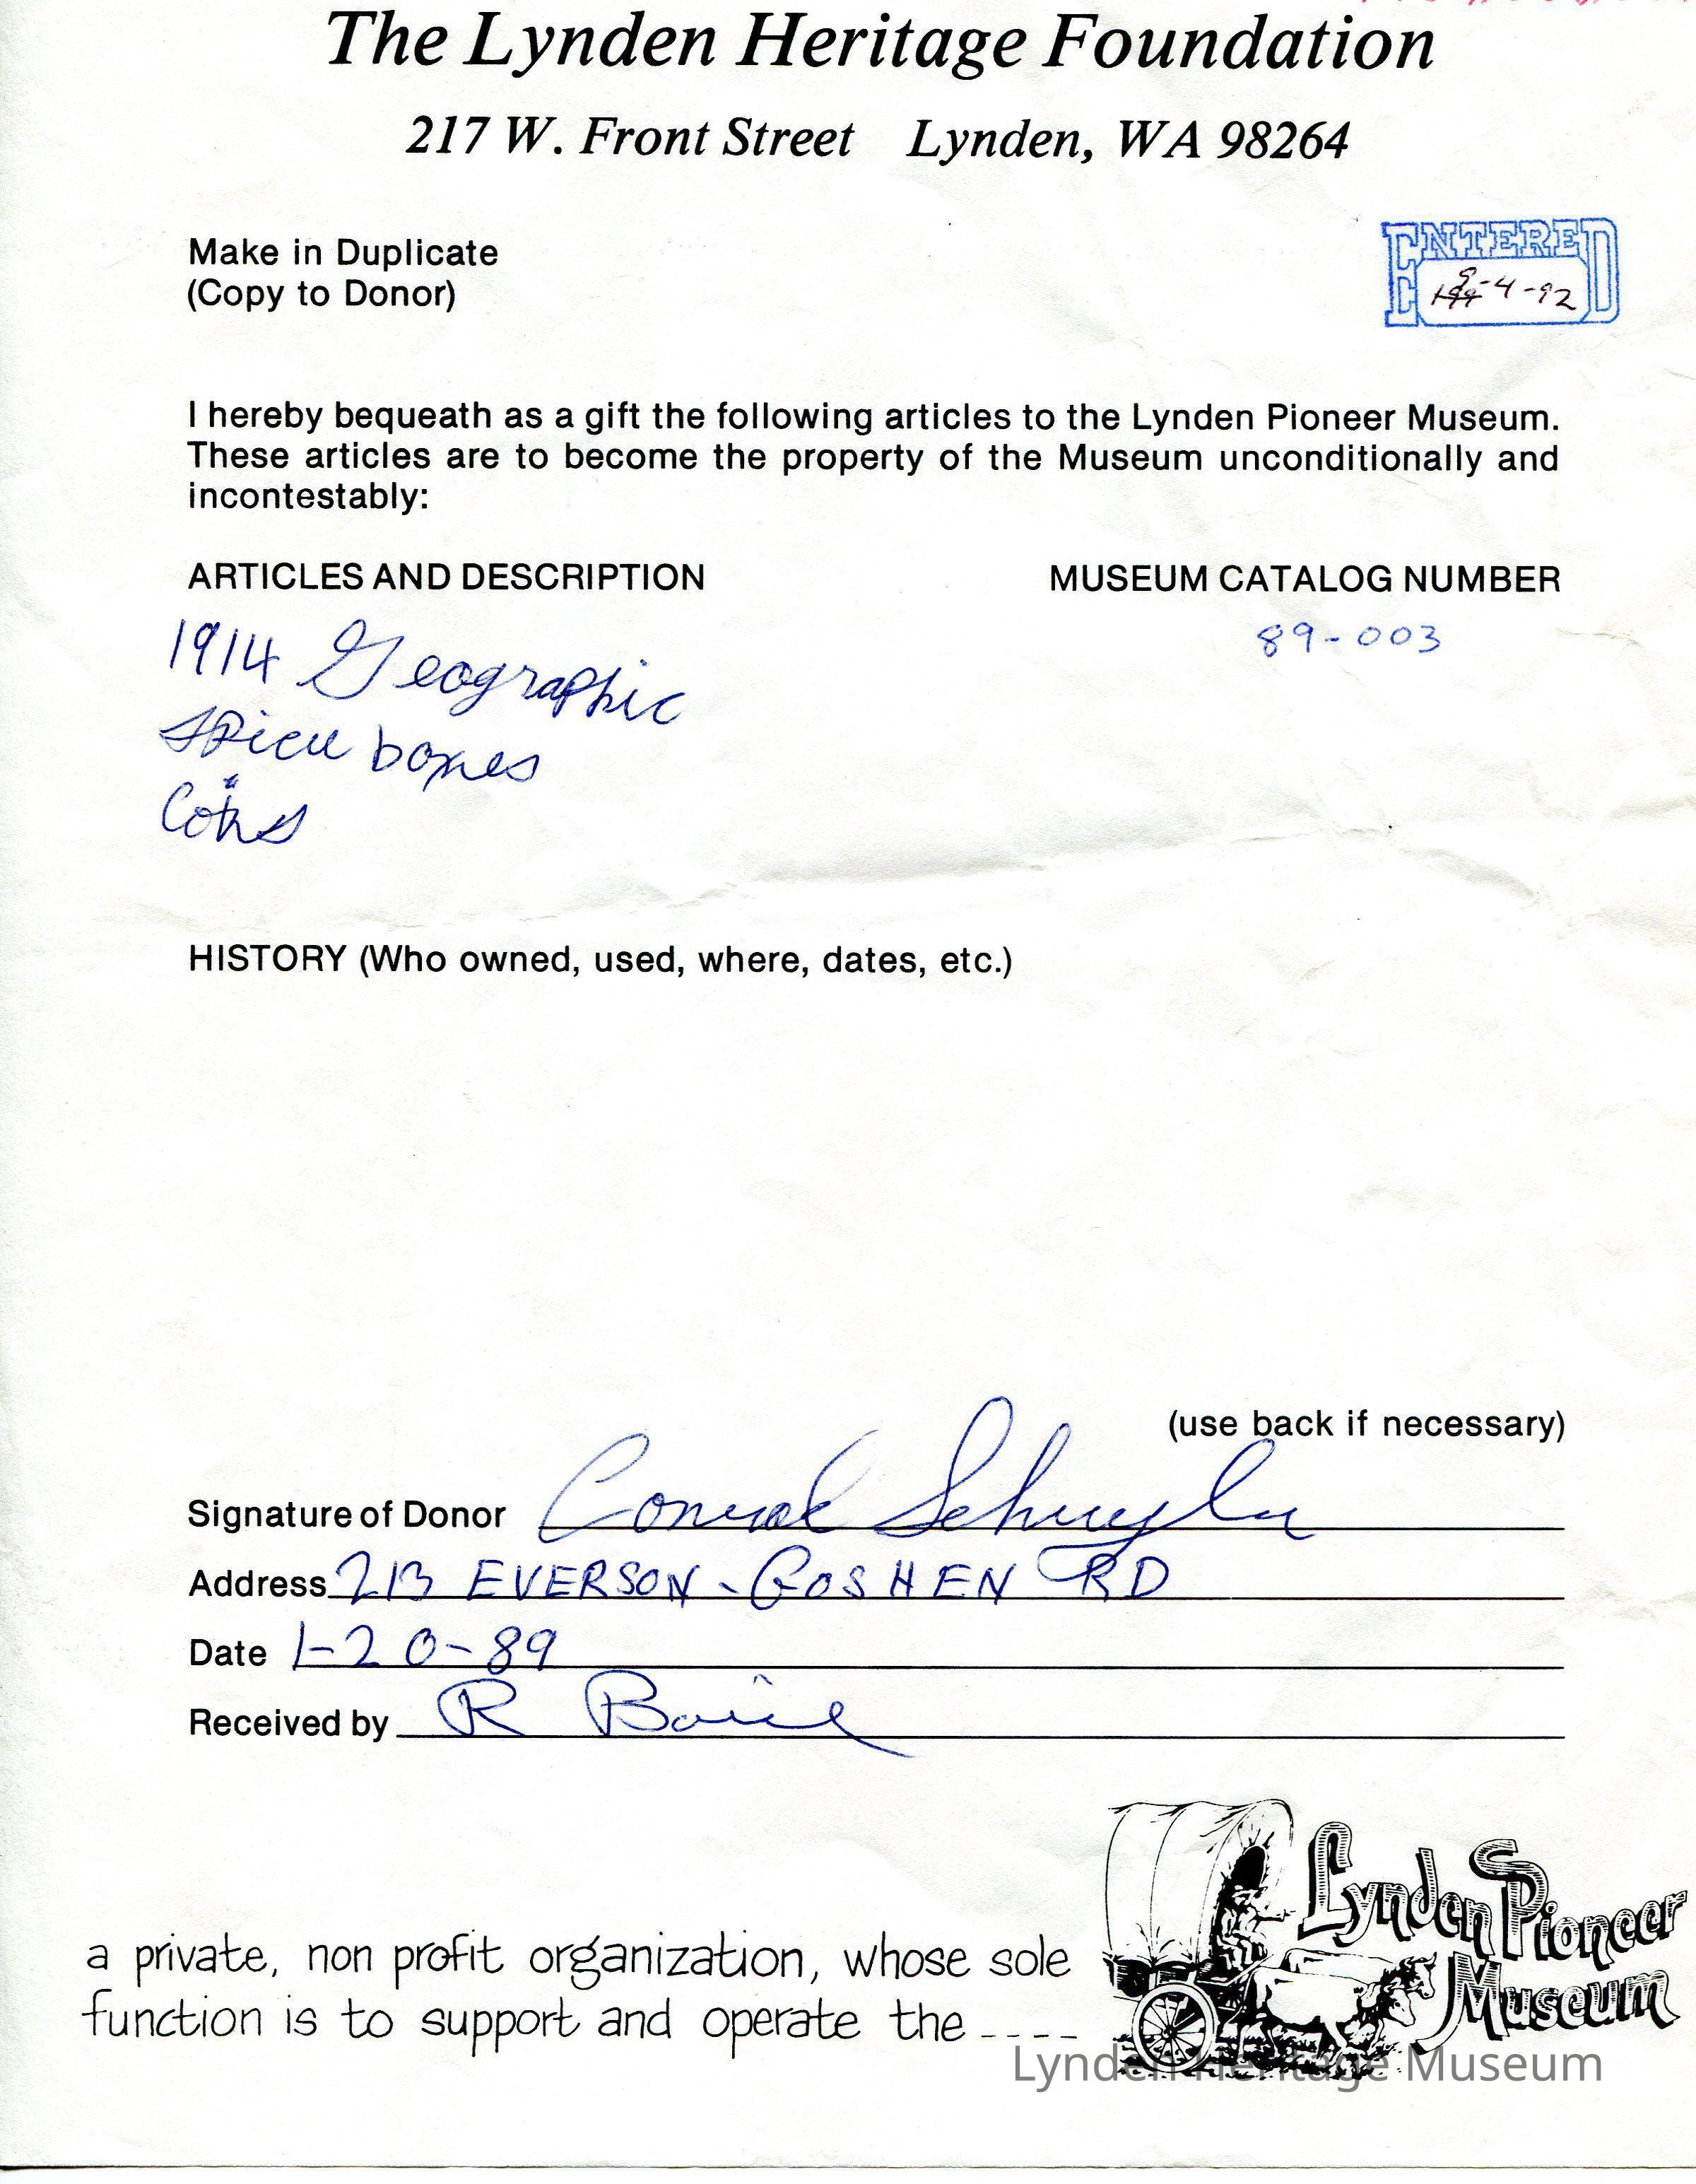 The Lynden Heritage Foundation
217 W. Front Street Lynden, WA 98264
Make in Duplicate
(Copy to Donor)
ENTERED
-4-92
I hereby bequeath as a gift the following articles to the Lynden Pioneer Museum.
These articles are to become the property of the Museum unconditionally and
incontestably:
ARTICLES AND DESCRIPTION MUSEUM CATALOG NUMBER
89-003
1914 Geographic
Spice boxes
Coins
HISTORY (Who owned, used, where, dates, etc.)
(use back if necessary)
Signature of Donor Conrad Schuyler
Address 213 EVERSON-GOSHEN RD
Date 1-20-89
Received by R
Lynden Pioneer
Museum
a private, non profit organization, whose sole
function is to support and operate the ----
Lynden Heritage Museum